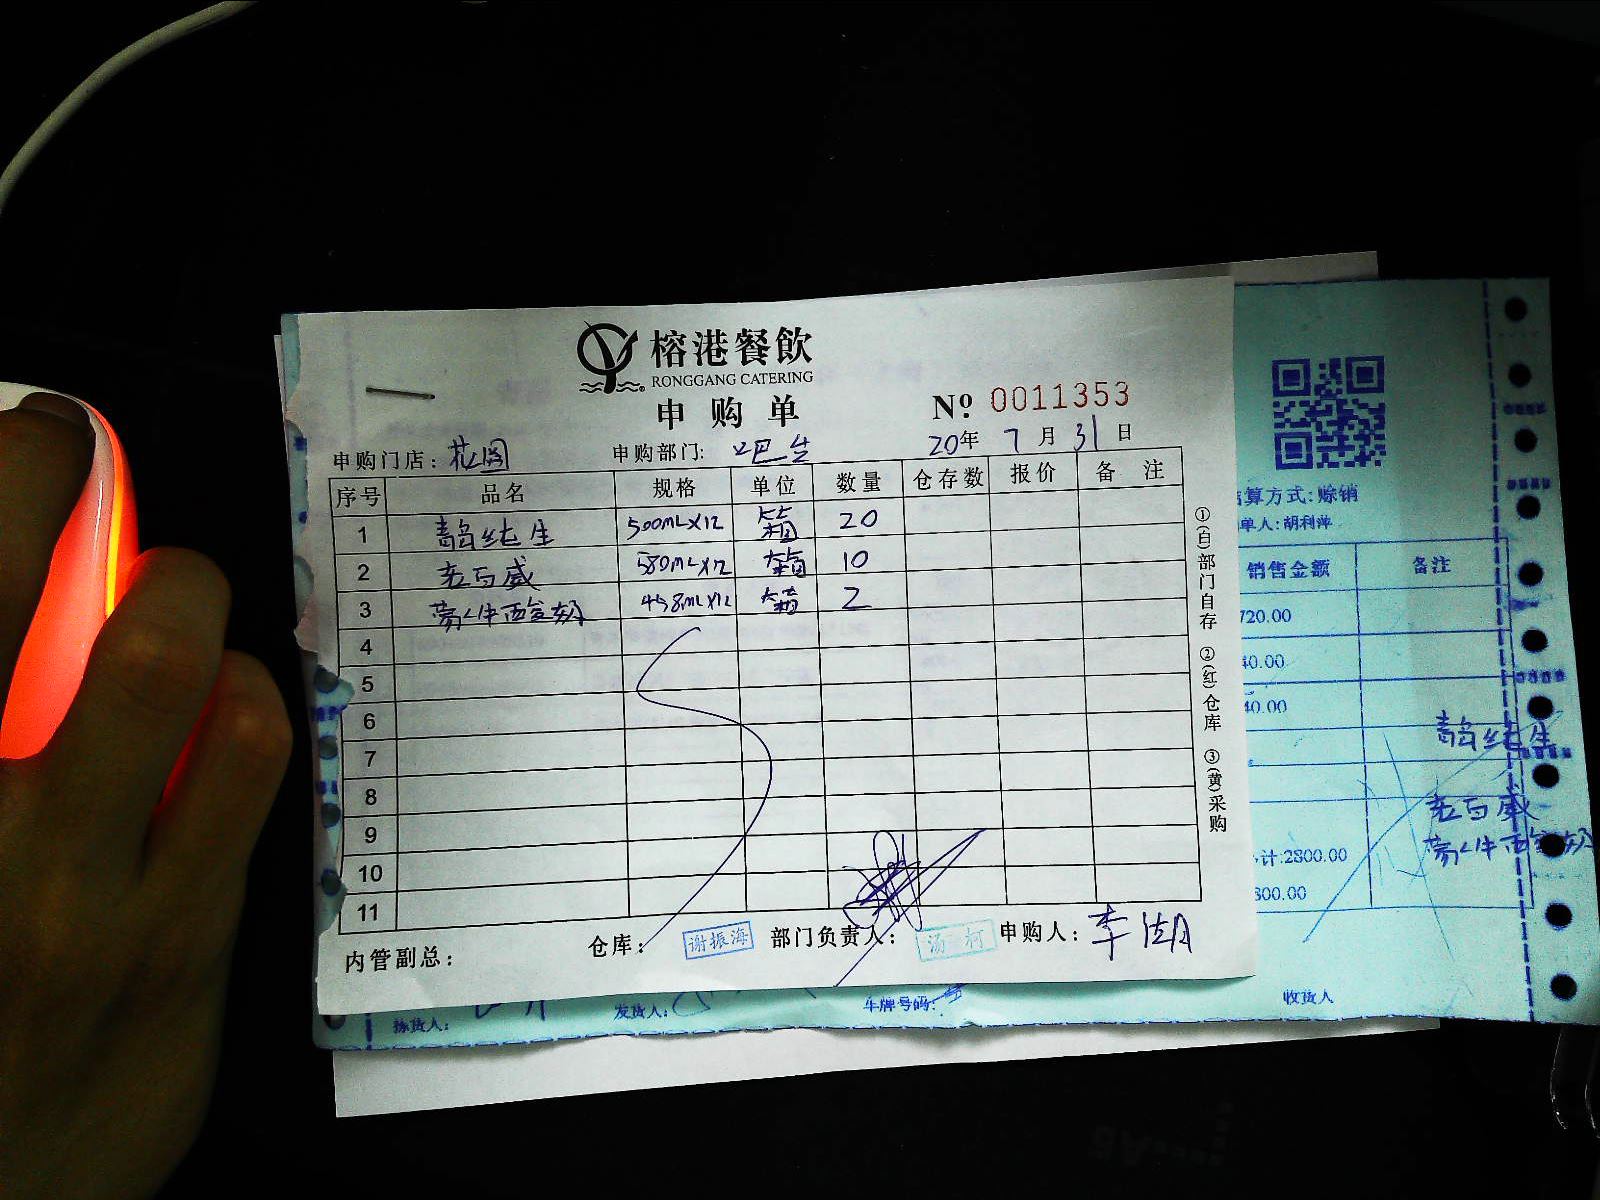 榕港餐飲
RONGGANG CATERING
申购单
№ 0011353
申购门店：花园 申购部门: 吧台 20年 7月 31日
序号 品名 规格 单位 数量 仓存数 报价 备注
1 青岛纯生 500mL×12 箱 20
2 老百威 580mL×12 箱 10
3 蒙牛酸奶 458mL×12 箱 2
4
5
6
7
8
9
10
11
内管副总： 仓库： 谢振海 部门负责人： 汤柯 申购人：李
①(白)部门自存 ②(红)仓库 ③(黄)采购
结算方式:赊销
单人:胡利萍
销售金额 备注
720.00
40.00
40.00
青岛纯生
老百威
计:2800.00 蒙牛酸奶
800.00
拣货人: 发货人: 车牌号码: 收货人